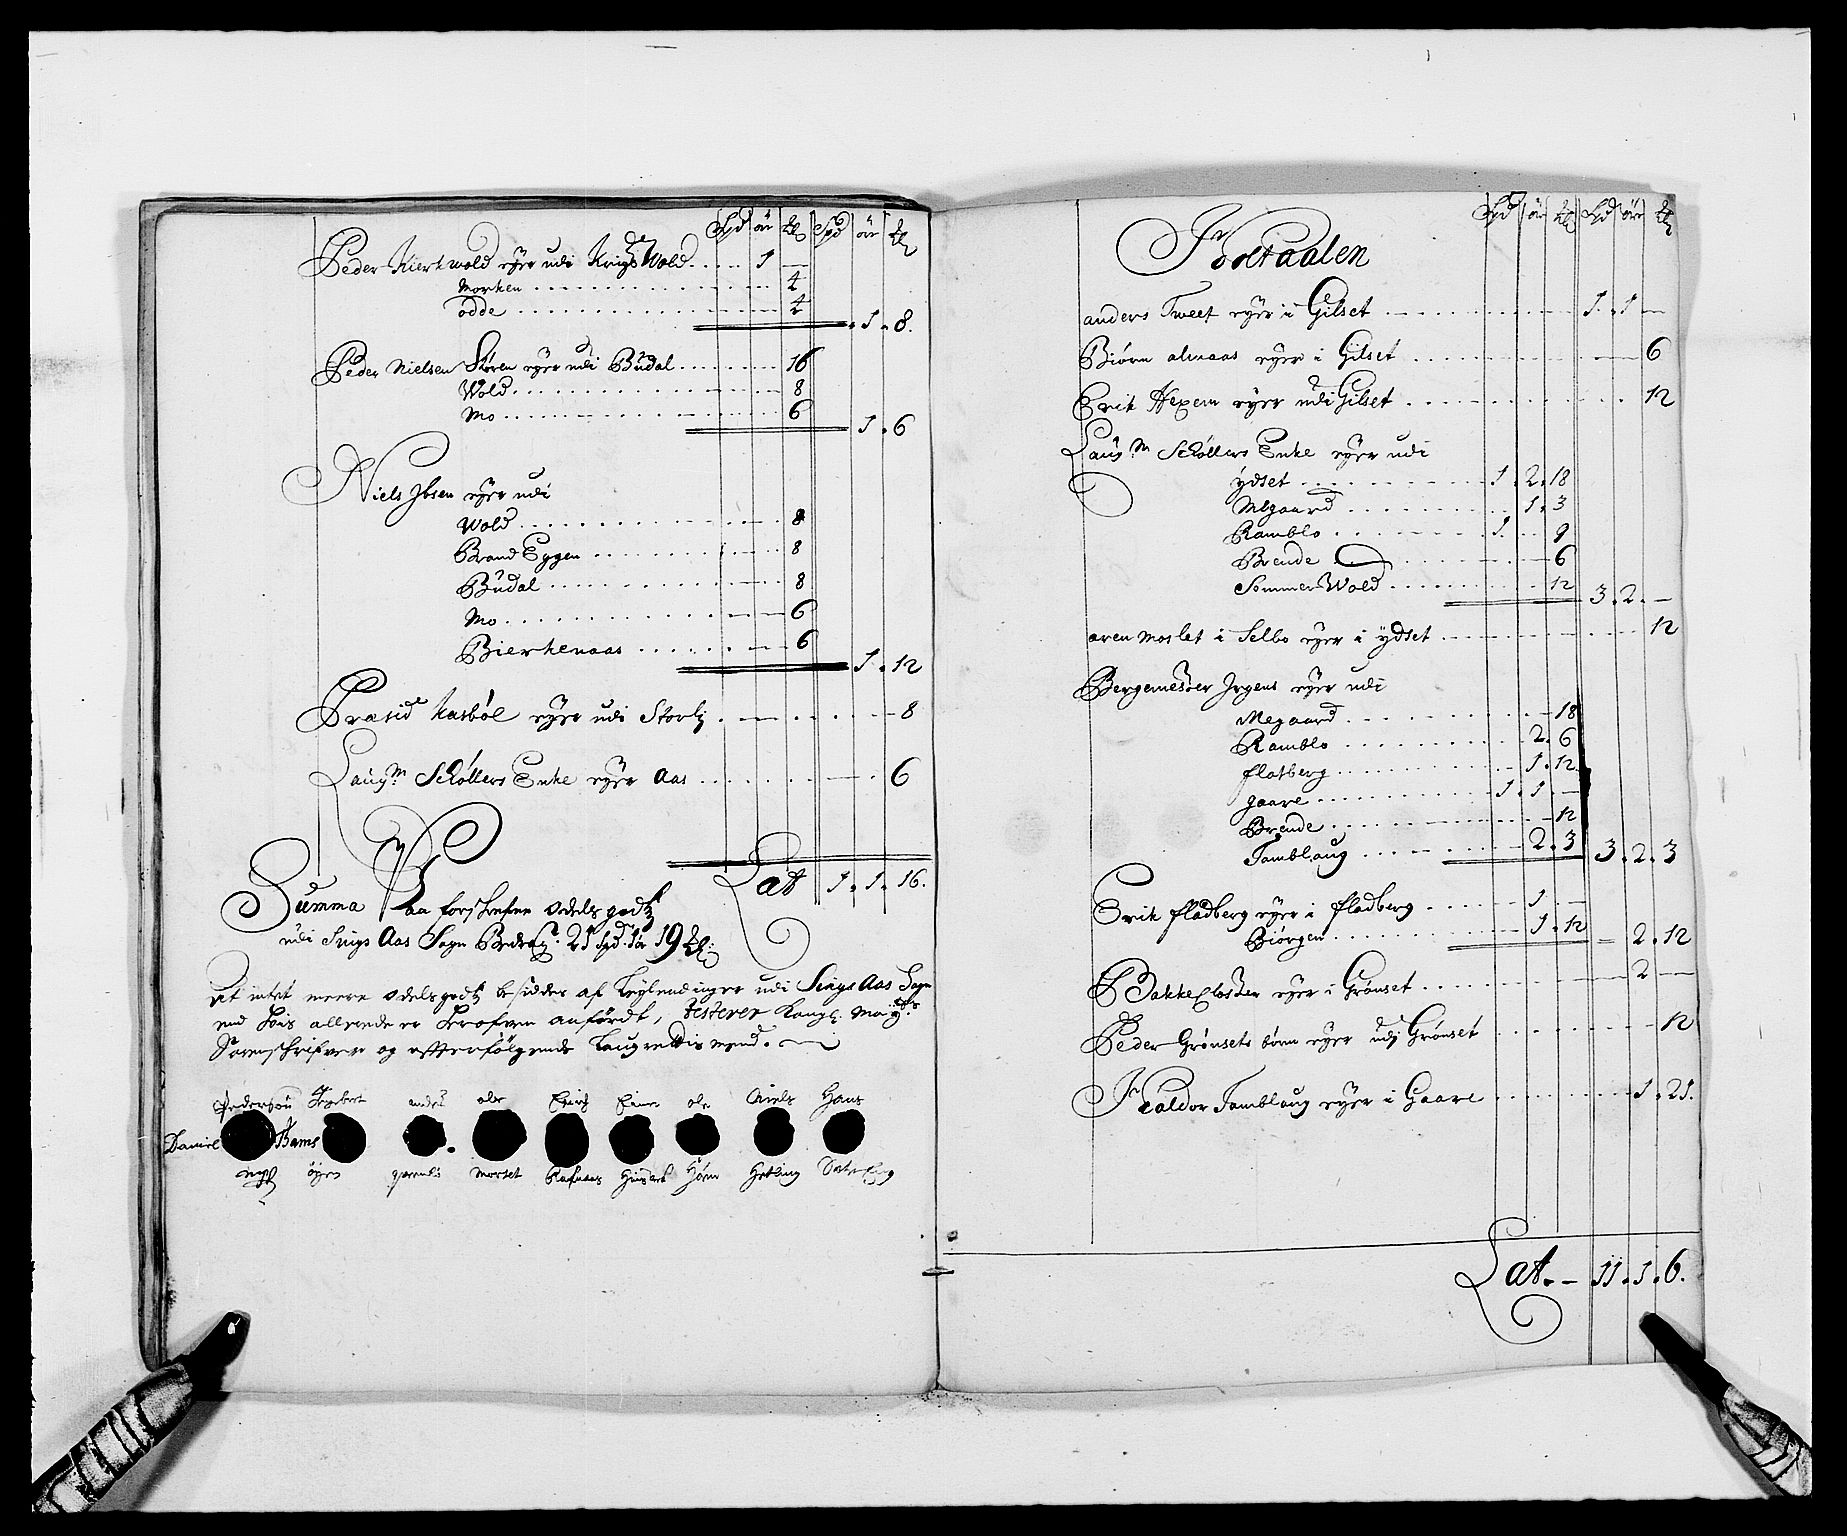 Spd ör ℳ Spd ör ℳ
Peder Kierkwold eyer udi Krigs Wold ..... 1 —
Morken ..... 4
Odde ..... 4
1. 8.
Peder Nielsen Støren eyer udi Büdal ..... 16
Wold ..... 8
Mo ..... 6
1. 6
Niels Ibsen eyer udi
Wold ..... 8
Brand Eggen ..... 8
Büdal ..... 8
Mo ..... 6
Bierkenaas ..... 6
1. 12
Præsid Kasböl eyer udi Storlj ..... 8
Laugm Schöllers Enke eyer Aas ..... 6
Lat 1. 1. 16.
Summa Paa forskrefne Odelsgodtz
udi Sings Aas Sogn Bedrag. 21 spd 1 ör 19
At intet meere odelsgodtz besiddes af Leylendinger udi Sings Aas Sogn
end som allerede er herofven anfördt, testerer Kongl. Mayts
Sorenschrifver og efterfölgende Laugrettismend.
Pedersön Ingebret anders ole Erich Einer ole Niels Hans
Daniel Bams
mpp öyen morset Rafnaas Hörm Hetling
Spd ör ℳ Spd ör ℳ
J Holtaalen
anders Tweet eyer i Gilset ..... 1. 1 —
Biörn almaas eyer i Gilset ..... 6
Erik Hexem eyer udi Gilset ..... 12
Laugm Schöllers Enke eyer udi
ydset ..... 1. 2. 18
Megaard ..... 1. 3
Ramblo ..... 1. 9
Brende ..... 6
Sommer Wold ..... 12
3. 2. —
aren moslet i Selbo eyer i ydset ..... 12
Bergemester Irgens eyer udi
Megaard ..... 18
Ramblo ..... 2. 6
flatberg ..... 1. 12
gaare ..... 1. 1. —
Brende ..... 12
Tamblaug ..... 2. 3 3. 2. 3
Erik fladberg eyer i fladberg ..... 1 —
Biörgen ..... 1. 12 — 2. 12
Bakke Closter eyer i Grönset ..... 2 —
Peder Grönsets börn eyer udj Grönset ..... 12
Haldor Tamblaug eyer i Gaare ..... 1. 21.
Lat. — 11. 1. 6.